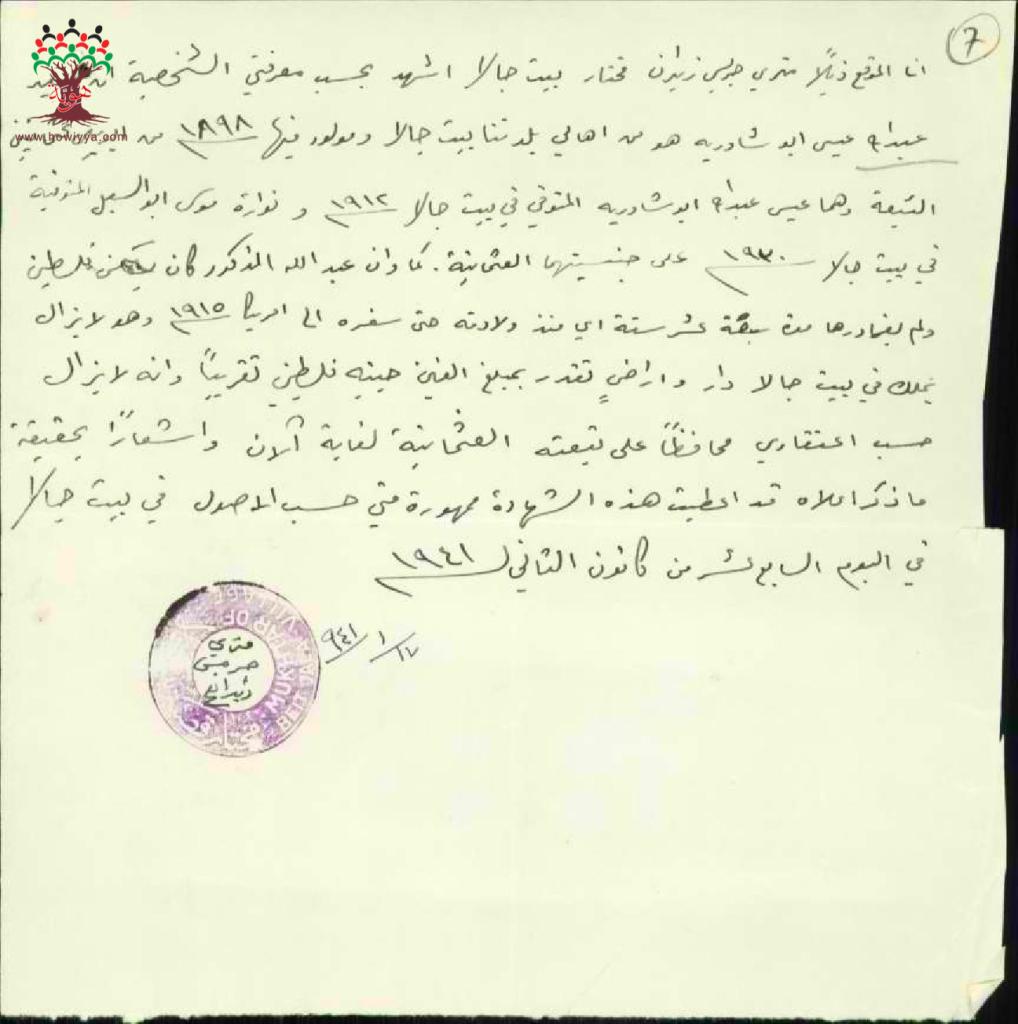 ٧
انا الموقع ذيلاً متري جريس زيدان مختار بيت جالا اشهد بحسب معرفتي الشخصية ان
www.howiyya.com
عبدالله عيسى ابو شاوريه هو من اهالي بلدتنا بيت جالا ومولود فيها ١٨٩٨ من
التبعة وهما عيسى عبدالله ابو شاوريه المتوفي في بيت جالا ١٩١٢ و نوارة موسى المتوفية
في بيت جالا ١٩٣٠ على جنسيتهما العثمانية. كما وان عبد الله المذكور كان يسكن فلسطين
ولم يغادرها مدة سبعة عشر سنة اي منذ ولادته حتى سفره الى امريكا ١٩١٥ وهو لا يزال
يملك في بيت جالا دار واراضٍ تقدر بمبلغ الفين جنيه فلسطيني تقريباً وانه لا يزال
حسب اعتقادي محافظاً على تبعته العثمانية لغاية الآن واشعاراً بحقيقة
ما ذكر اعلاه قد اعطيت هذه الشهادة ممهورة مني حسب الاصول في بيت جالا
في اليوم السابع عشر من كانون الثاني ١٩٤١
١٧/١/٩٤١
متري
جريس
زيدان
MUKHTAR OF
BEIT JALA